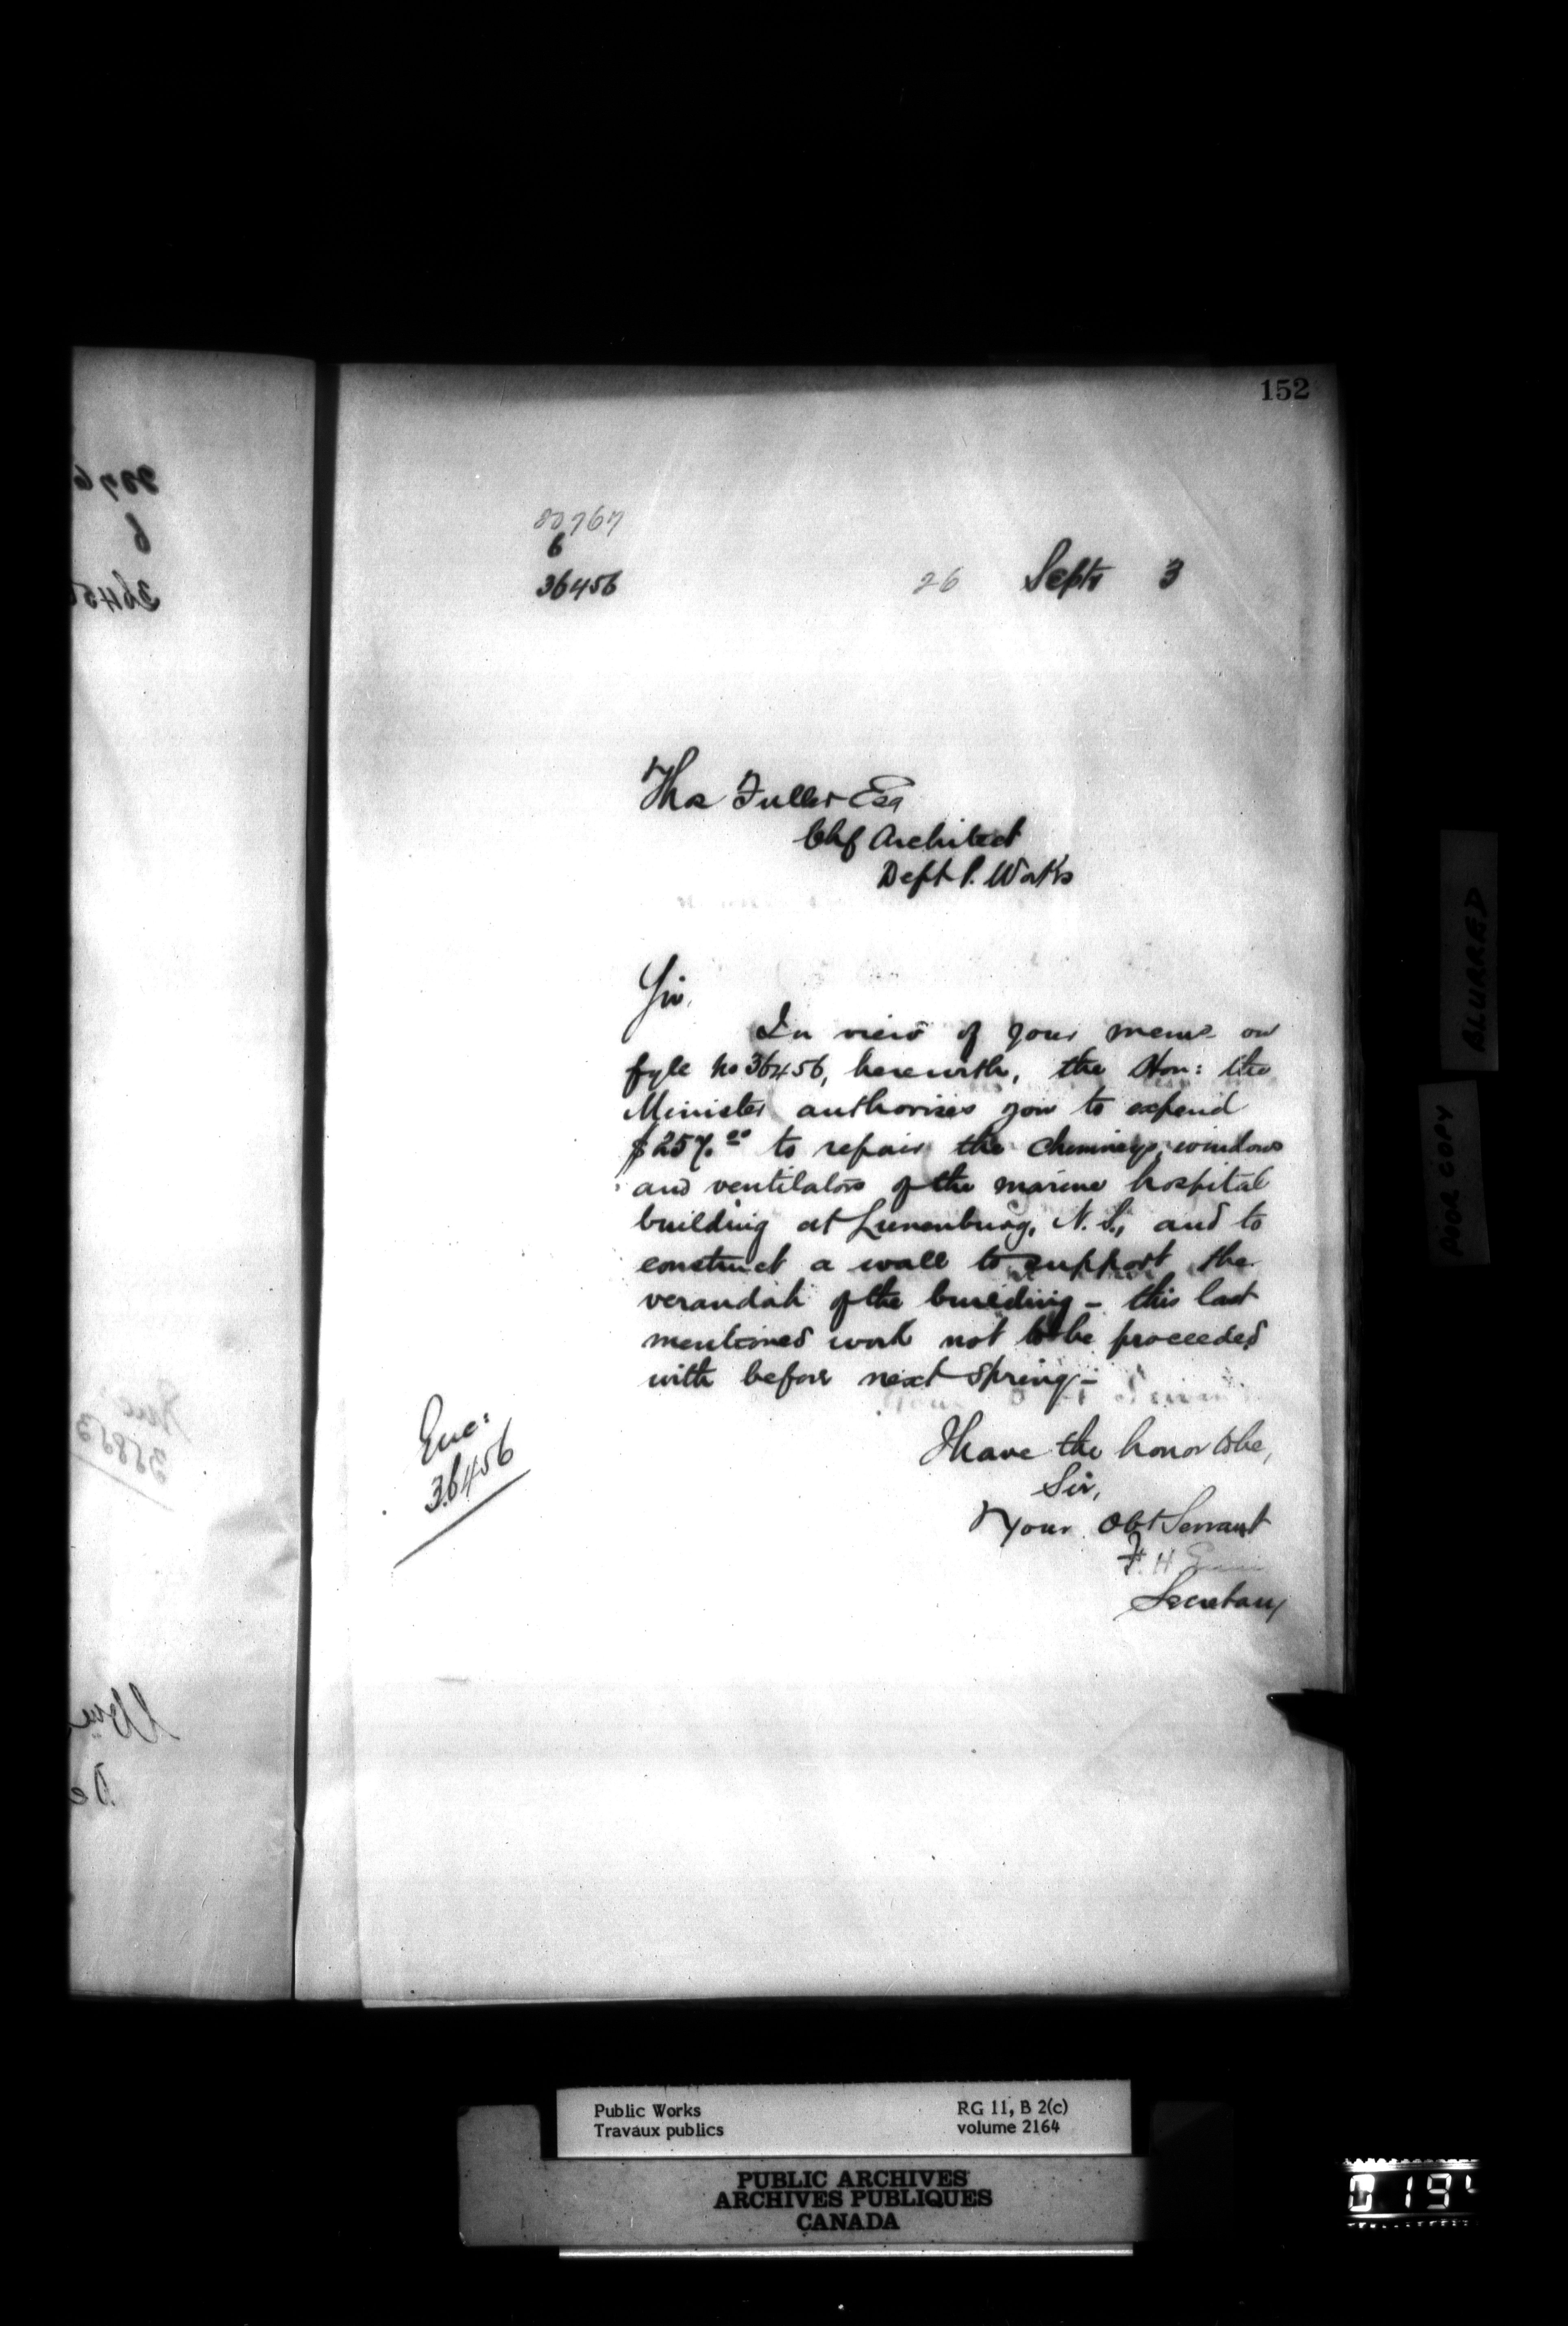 152
80767
6
36456
26 Septr 3
Thos Fuller Esq
Chf Architect
Dept P. Works
Sir,
In view of your memo on
fyle no 36456, herewith, the Hon: the
Minister authorises you to expend
$257.00 to repair the chimneys, windows
and ventilators of the marine hospital
building at Lunenburg, N.S., and to
construct a wall to support the
verandah of the building - this last
mentioned work not to be proceeded
with before next spring -
Enc:
36456
I have the honor to be,
Sir,
Your Obt Servant
F. H.
Secretary
BLURRED
POOR COPY
Public Works
Travaux publics
RG 11, B 2(c)
volume 2164
PUBLIC ARCHIVES
ARCHIVES PUBLIQUES
CANADA